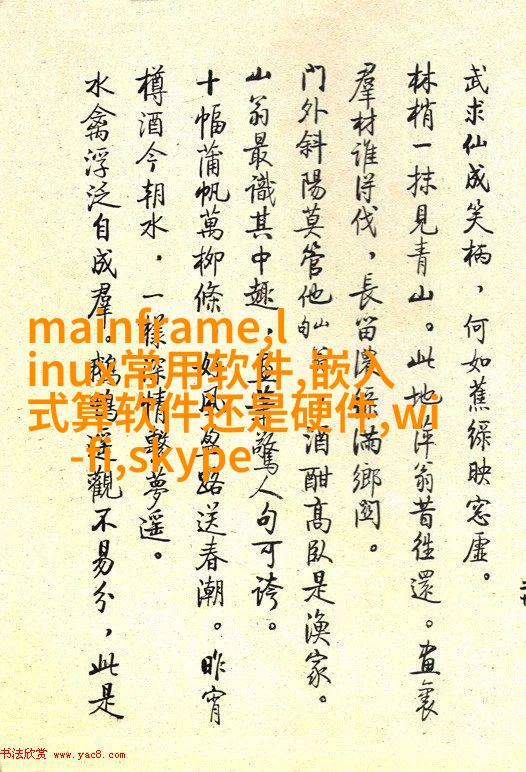 武求仙成笑柄，何如蕉綠映窓虛。
林梢一抹見青山。此地萍翁昔往還。画裏
羣材誰得伐，長留綠滿鄉関。
門外斜陽莫管他，酒酣高臥是漁家。
山翁最識其中趣，驚人句可誇。
十幅蒲帆萬柳條，好風路送春潮。昨宵
樽酒今朝水，一樣深情繫夢遥。
水禽浮泛自成羣。鵝鴨遥觀不易分，此是
mainframe,l
inux常用软件,嵌入
式算软件还是硬件,wi
-fi,skype
书法欣赏 www.yac8.com